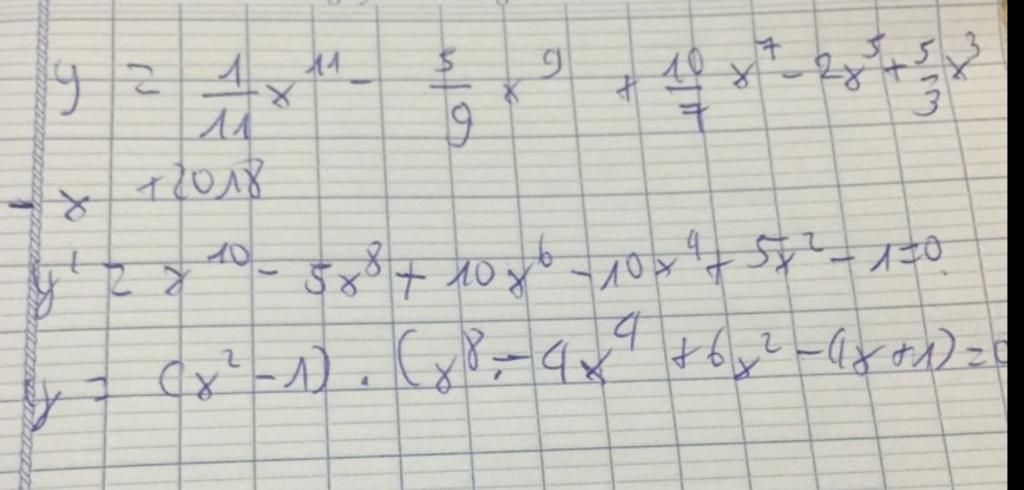 y = 1/11 x^11 - 5/9 x^9 + 10/7 x^7 - 2x^5 + 5/3 x^3
- x + 2018
y' = x^10 - 5x^8 + 10x^6 - 10x^4 + 5x^2 - 1 = 0
y = (x^2 - 1) . (x^8 - 4x^4 + 6x^2 - 4x + 1) = 0